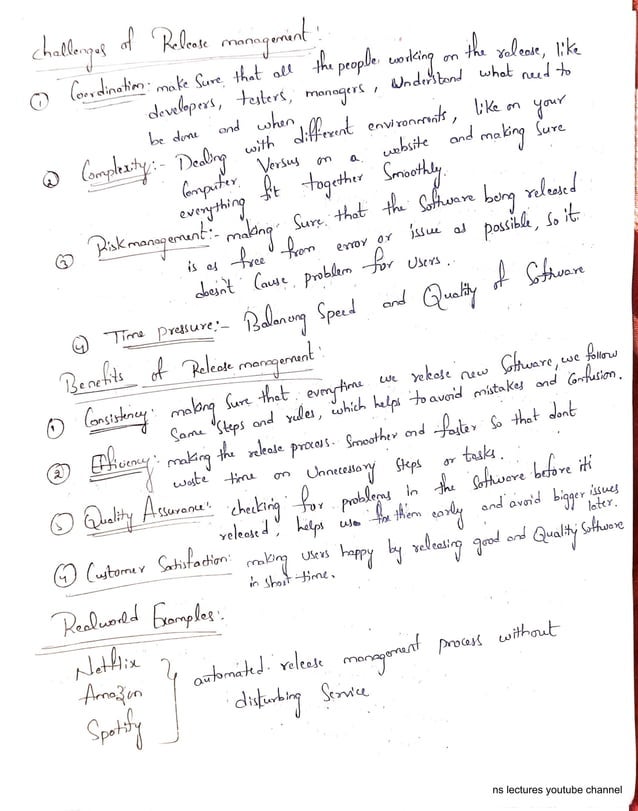 Challenges of Release management:
① Coordination: make sure that all the people working on the release, like
developers, testers, managers, understand what need to
be done and when
② Complexity:- Dealing with different environments, like on your
Computer Versus on a website and making sure
everything fit together Smoothly.
③ Risk management:- making sure that the Software being released
is as free from error or issue as possible, so it
doesn't Cause problem for users.
④ Time pressure:- Balancing Speed and Quality of Software
Benefits of Release management:
① Consistency: making sure that everytime we release new Software, we follow
Same steps and rules, which helps to avoid mistakes and Confusion.
② Efficiency: making the release process. Smoother and faster so that dont
waste time on Unnecessary steps or tasks.
③ Quality Assurance: checking for problems in the Software before it's
released, helps us fix them early and avoid bigger issues
later.
④ Customer Satisfaction: making users happy by releasing good and Quality Software
in short time.
Realworld Examples:
Netflix
Amazon
Spotify
automated release management process without
disturbing Service
ns lectures youtube channel